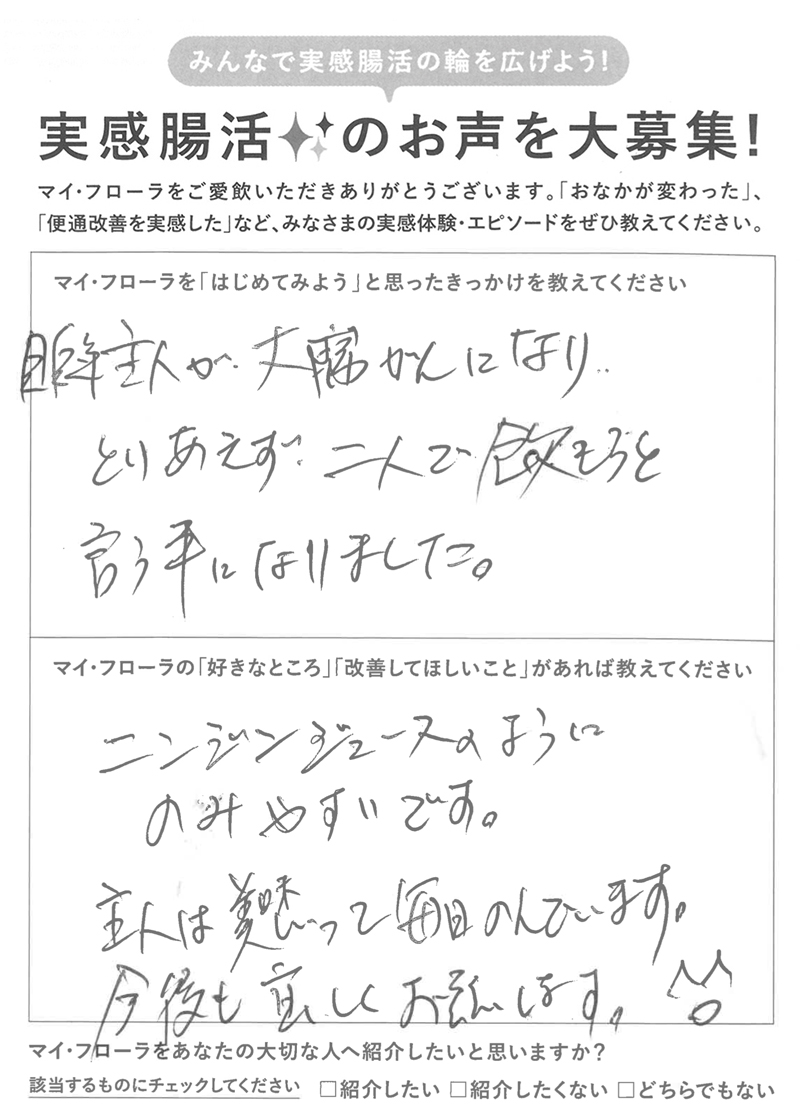 みんなで実感腸活の輪を広げよう!
実感腸活のお声を大募集!
マイ・フローラをご愛飲いただきありがとうございます。「おなかが変わった」、
「便通改善を実感した」など、みなさまの実感体験・エピソードをぜひ教えてください。
マイ・フローラを「はじめてみよう」と思ったきっかけを教えてください
昨年主人が、大腸がんになり..
とりあえず、二人で飲もうと
言う事になりました。
マイ・フローラの「好きなところ」「改善してほしいこと」があれば教えてください
ニンジンジュースのように
のみやすいです。
主人は美味いって毎日のんでいます。
今後も宜しくお願いします。
マイ・フローラをあなたの大切な人へ紹介したいと思いますか?
該当するものにチェックしてください □紹介したい □紹介したくない □どちらでもない